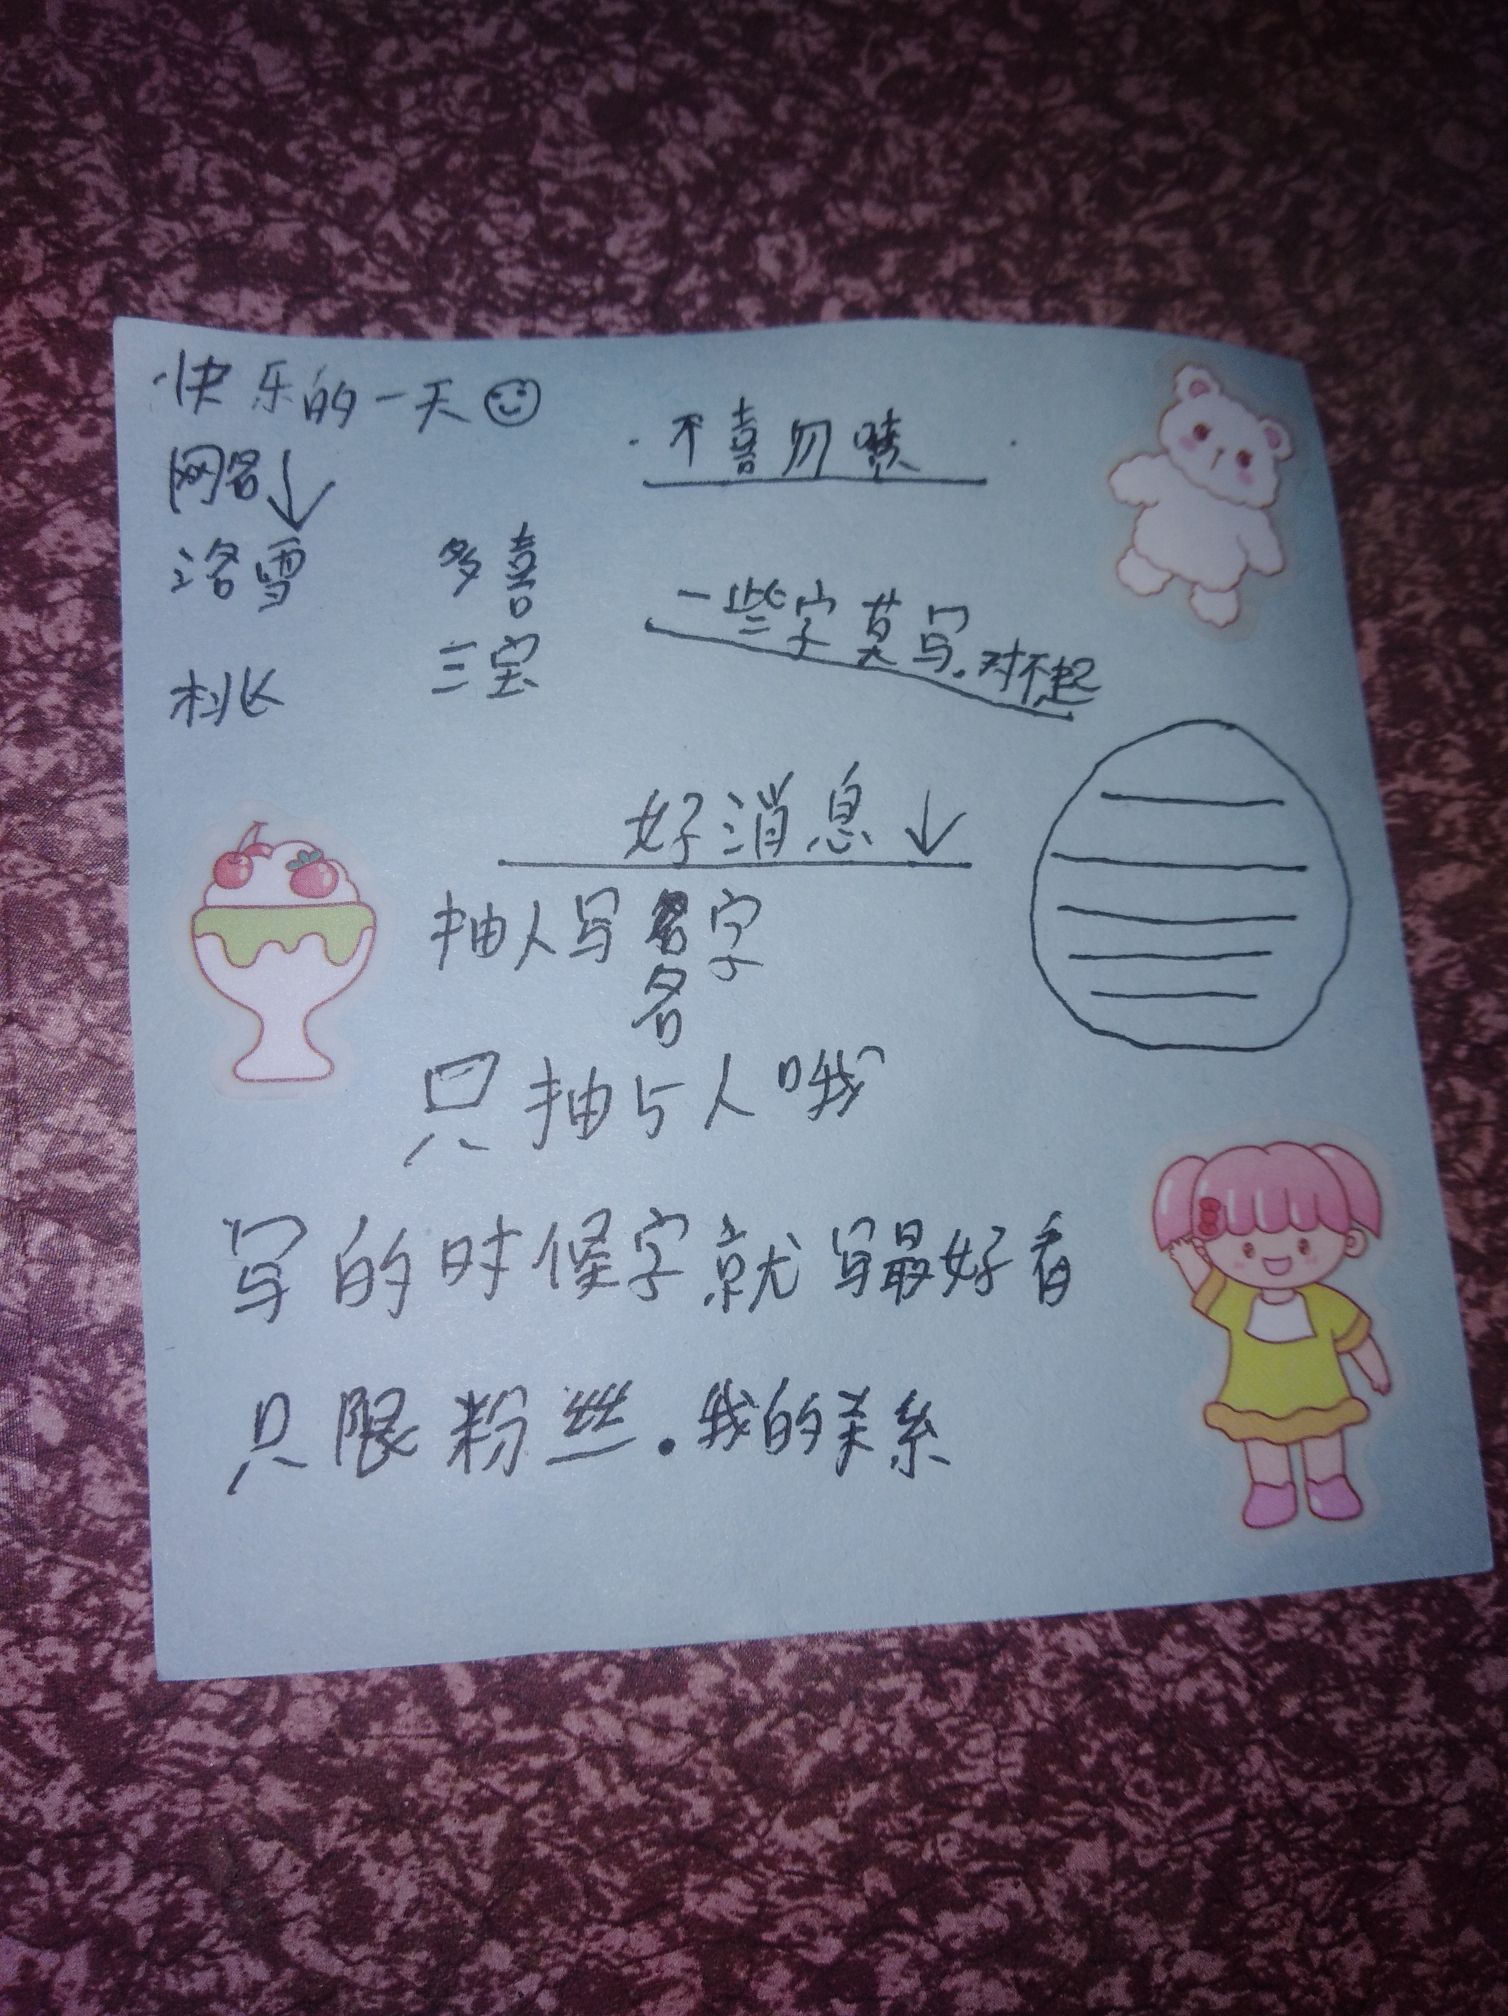 快乐的一天
不喜勿喷
网名↓
洛雪 多喜
一些字莫写.对不起
三宝
好消息↓
抽人写名字
名
只抽5人哦
写的时候字就写最好看
只限粉丝.我的关系